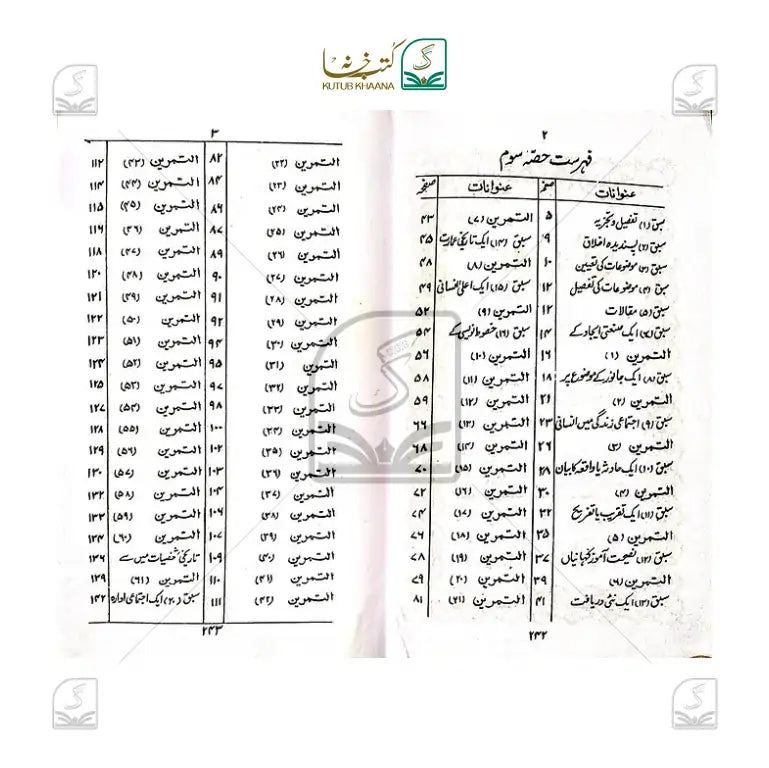 کتب خانہ
KUTUB KHAANA
۲
فہرست حصّہ سوم
عنوانات صفحہ عنوانات صفحہ
سبق (۱) تفصیل و تجزیہ ۵ التمرین (۷) ۴۳
سبق (۲) پسندیدہ اخلاق ۹ سبق (۱۴) ایک تاریخی عمارت ۴۵
سبق (۳) موضوعات کی تعیین ۱۰ التمرین (۸) ۴۸
سبق (۴) موضوعات کی تفصیل ۱۲ سبق (۱۵) ایک اعلیٰ انسانی ۴۹
سبق (۵) مقالات ۱۲ التمرین (۹) ۵۲
سبق (۷) ایک صنعتی ایجاد کے ۱۴ سبق (۱۶) خطوط نویسی کے ۵۴
التمرین (۱) ۱۶ التمرین (۱۰) ۵۶
سبق (۸) ایک جانور کے موضوع پر ۱۸ التمرین (۱۱) ۵۸
التمرین (۲) ۲۱ التمرین (۱۲) ۵۹
سبق (۹) اجتماعی زندگی میں انسانی ۲۳ التمرین (۱۳) ۶۶
التمرین (۳) ۲۶ التمرین (۱۴) ۶۸
سبق (۱۰) ایک حادثہ یا واقعہ کا بیان ۲۸ التمرین (۱۵) ۷۰
التمرین (۴) ۳۰ التمرین (۱۶) ۷۲
سبق (۱۱) ایک تقریب یا تفریح ۳۲ التمرین (۱۷) ۷۴
التمرین (۵) ۳۵ التمرین (۱۸) ۷۶
سبق (۱۲) نصیحت آموز کہانیاں ۳۷ التمرین (۱۹) ۷۸
التمرین (۶) ۳۹ التمرین (۲۰) ۷۹
سبق (۱۳) ایک نئی دریافت ۴۱ التمرین (۲۱) ۸۱
۲۴۲
۳
التمرین (۲۲) ۸۲ التمرین (۴۳) ۱۱۲
التمرین (۲۳) ۸۴ التمرین (۴۴) ۱۱۴
التمرین (۲۴) ۸۶ التمرین (۴۵) ۱۱۵
التمرین (۲۵) ۸۷ التمرین (۴۶) ۱۱۶
التمرین (۲۶) ۸۹ التمرین (۴۷) ۱۱۸
التمرین (۲۷) ۹۰ التمرین (۴۸) ۱۲۰
التمرین (۲۸) ۹۱ التمرین (۴۹) ۱۲۱
التمرین (۲۹) ۹۲ التمرین (۵۰) ۱۲۲
التمرین (۳۰) ۹۴ التمرین (۵۱) ۱۲۳
التمرین (۳۱) ۹۵ التمرین (۵۲) ۱۲۴
التمرین (۳۲) ۹۷ التمرین (۵۳) ۱۲۵
التمرین (۳۳) ۹۸ التمرین (۵۴) ۱۲۷
التمرین (۳۴) ۱۰۰ التمرین (۵۵) ۱۲۸
التمرین (۳۵) ۱۰۲ التمرین (۵۶) ۱۲۹
التمرین (۳۶) ۱۰۳ التمرین (۵۷) ۱۳۰
التمرین (۳۷) ۱۰۴ التمرین (۵۸) ۱۳۲
التمرین (۳۸) ۱۰۶ التمرین (۵۹) ۱۳۳
التمرین (۳۹) ۱۰۷ التمرین (۶۰) ۱۳۴
التمرین (۴۰) ۱۰۹ تاریخی شخصیات میں سے ۱۳۶
التمرین (۴۱) ۱۱۰ التمرین (۶۱) ۱۳۹
التمرین (۴۲) ۱۱۱ سبق (۲۰) ایک اجتماعی ادارہ ۱۴۲
۲۴۳